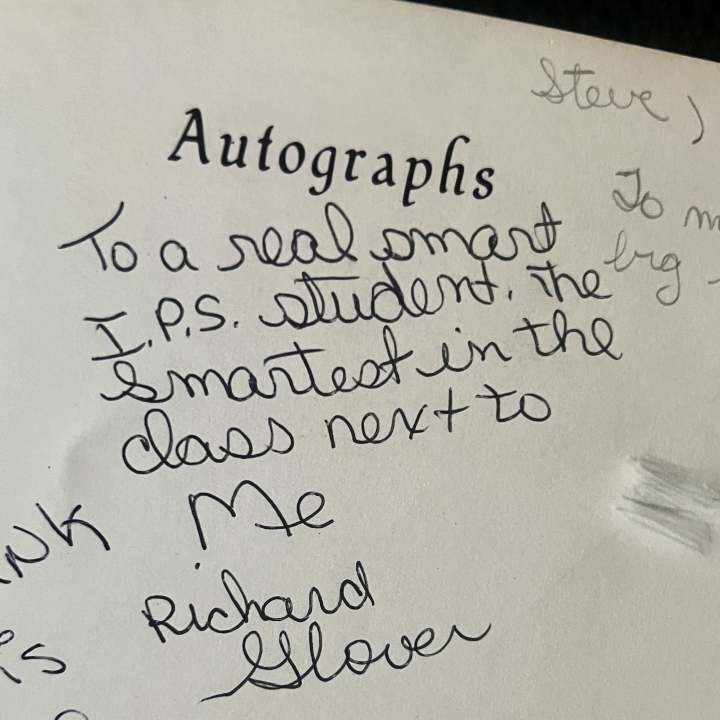 Autographs
To a real smart
I.P.S. student. The
smartest in the
class next to
Me
Richard
Glover
Steve,
To
big